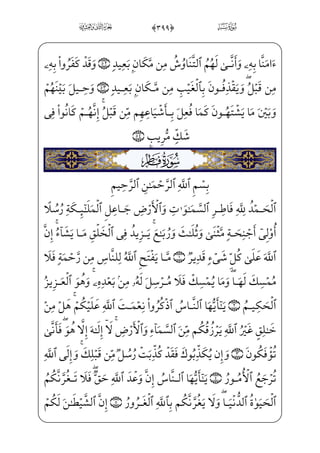 ءَامَنَّا بِهِۦ وَأَنَّىٰ لَهُمُ ٱلتَّنَاوُشُ مِن مَّكَانِۭ بَعِيدٍ ۝ وَقَدْ كَفَرُوا۟ بِهِۦ
مِن قَبْلُ ۖ وَيَقْذِفُونَ بِٱلْغَيْبِ مِن مَّكَانِۭ بَعِيدٍ ۝ وَحِيلَ بَيْنَهُمْ
وَبَيْنَ مَا يَشْتَهُونَ كَمَا فُعِلَ بِأَشْيَاعِهِم مِّن قَبْلُ ۚ إِنَّهُمْ كَانُوا۟ فِى
شَكٍّ مُّرِيبٍۭ ۝
بِسْمِ ٱللَّهِ ٱلرَّحْمَـٰنِ ٱلرَّحِيمِ
ٱلْحَمْدُ لِلَّهِ فَاطِرِ ٱلسَّمَـٰوَٰتِ وَٱلْأَرْضِ جَاعِلِ ٱلْمَلَـٰٓئِكَةِ رُسُلًا
أُو۟لِىٓ أَجْنِحَةٍ مَّثْنَىٰ وَثُلَـٰثَ وَرُبَـٰعَ ۚ يَزِيدُ فِى ٱلْخَلْقِ مَا يَشَآءُ ۚ إِنَّ
ٱللَّهَ عَلَىٰ كُلِّ شَىْءٍ قَدِيرٌ ۝ مَّا يَفْتَحِ ٱللَّهُ لِلنَّاسِ مِن رَّحْمَةٍ فَلَا
مُمْسِكَ لَهَا ۖ وَمَا يُمْسِكْ فَلَا مُرْسِلَ لَهُۥ مِنۢ بَعْدِهِۦ ۚ وَهُوَ ٱلْعَزِيزُ
ٱلْحَكِيمُ ۝ يَـٰٓأَيُّهَا ٱلنَّاسُ ٱذْكُرُوا۟ نِعْمَتَ ٱللَّهِ عَلَيْكُمْ ۚ هَلْ مِنْ
خَـٰلِقٍ غَيْرُ ٱللَّهِ يَرْزُقُكُم مِّنَ ٱلسَّمَآءِ وَٱلْأَرْضِ ۚ لَآ إِلَـٰهَ إِلَّا هُوَ ۖ فَأَنَّىٰ
تُؤْفَكُونَ ۝ وَإِن يُكَذِّبُوكَ فَقَدْ كُذِّبَتْ رُسُلٌ مِّن قَبْلِكَ ۚ وَإِلَى ٱللَّهِ
تُرْجَعُ ٱلْأُمُورُ ۝ يَـٰٓأَيُّهَا ٱلنَّاسُ إِنَّ وَعْدَ ٱللَّهِ حَقٌّ ۖ فَلَا تَغُرَّنَّكُمُ
ٱلْحَيَوٰةُ ٱلدُّنْيَا ۖ وَلَا يَغُرَّنَّكُم بِٱللَّهِ ٱلْغَرُورُ ۝ إِنَّ ٱلشَّيْطَـٰنَ لَكُمْ